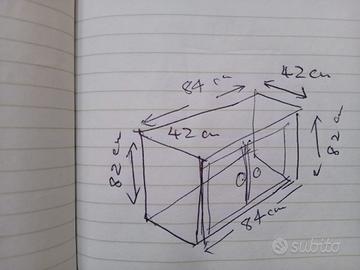 84 cm
42 cm
42 cm
82 cm
82 cm
84 cm
subito